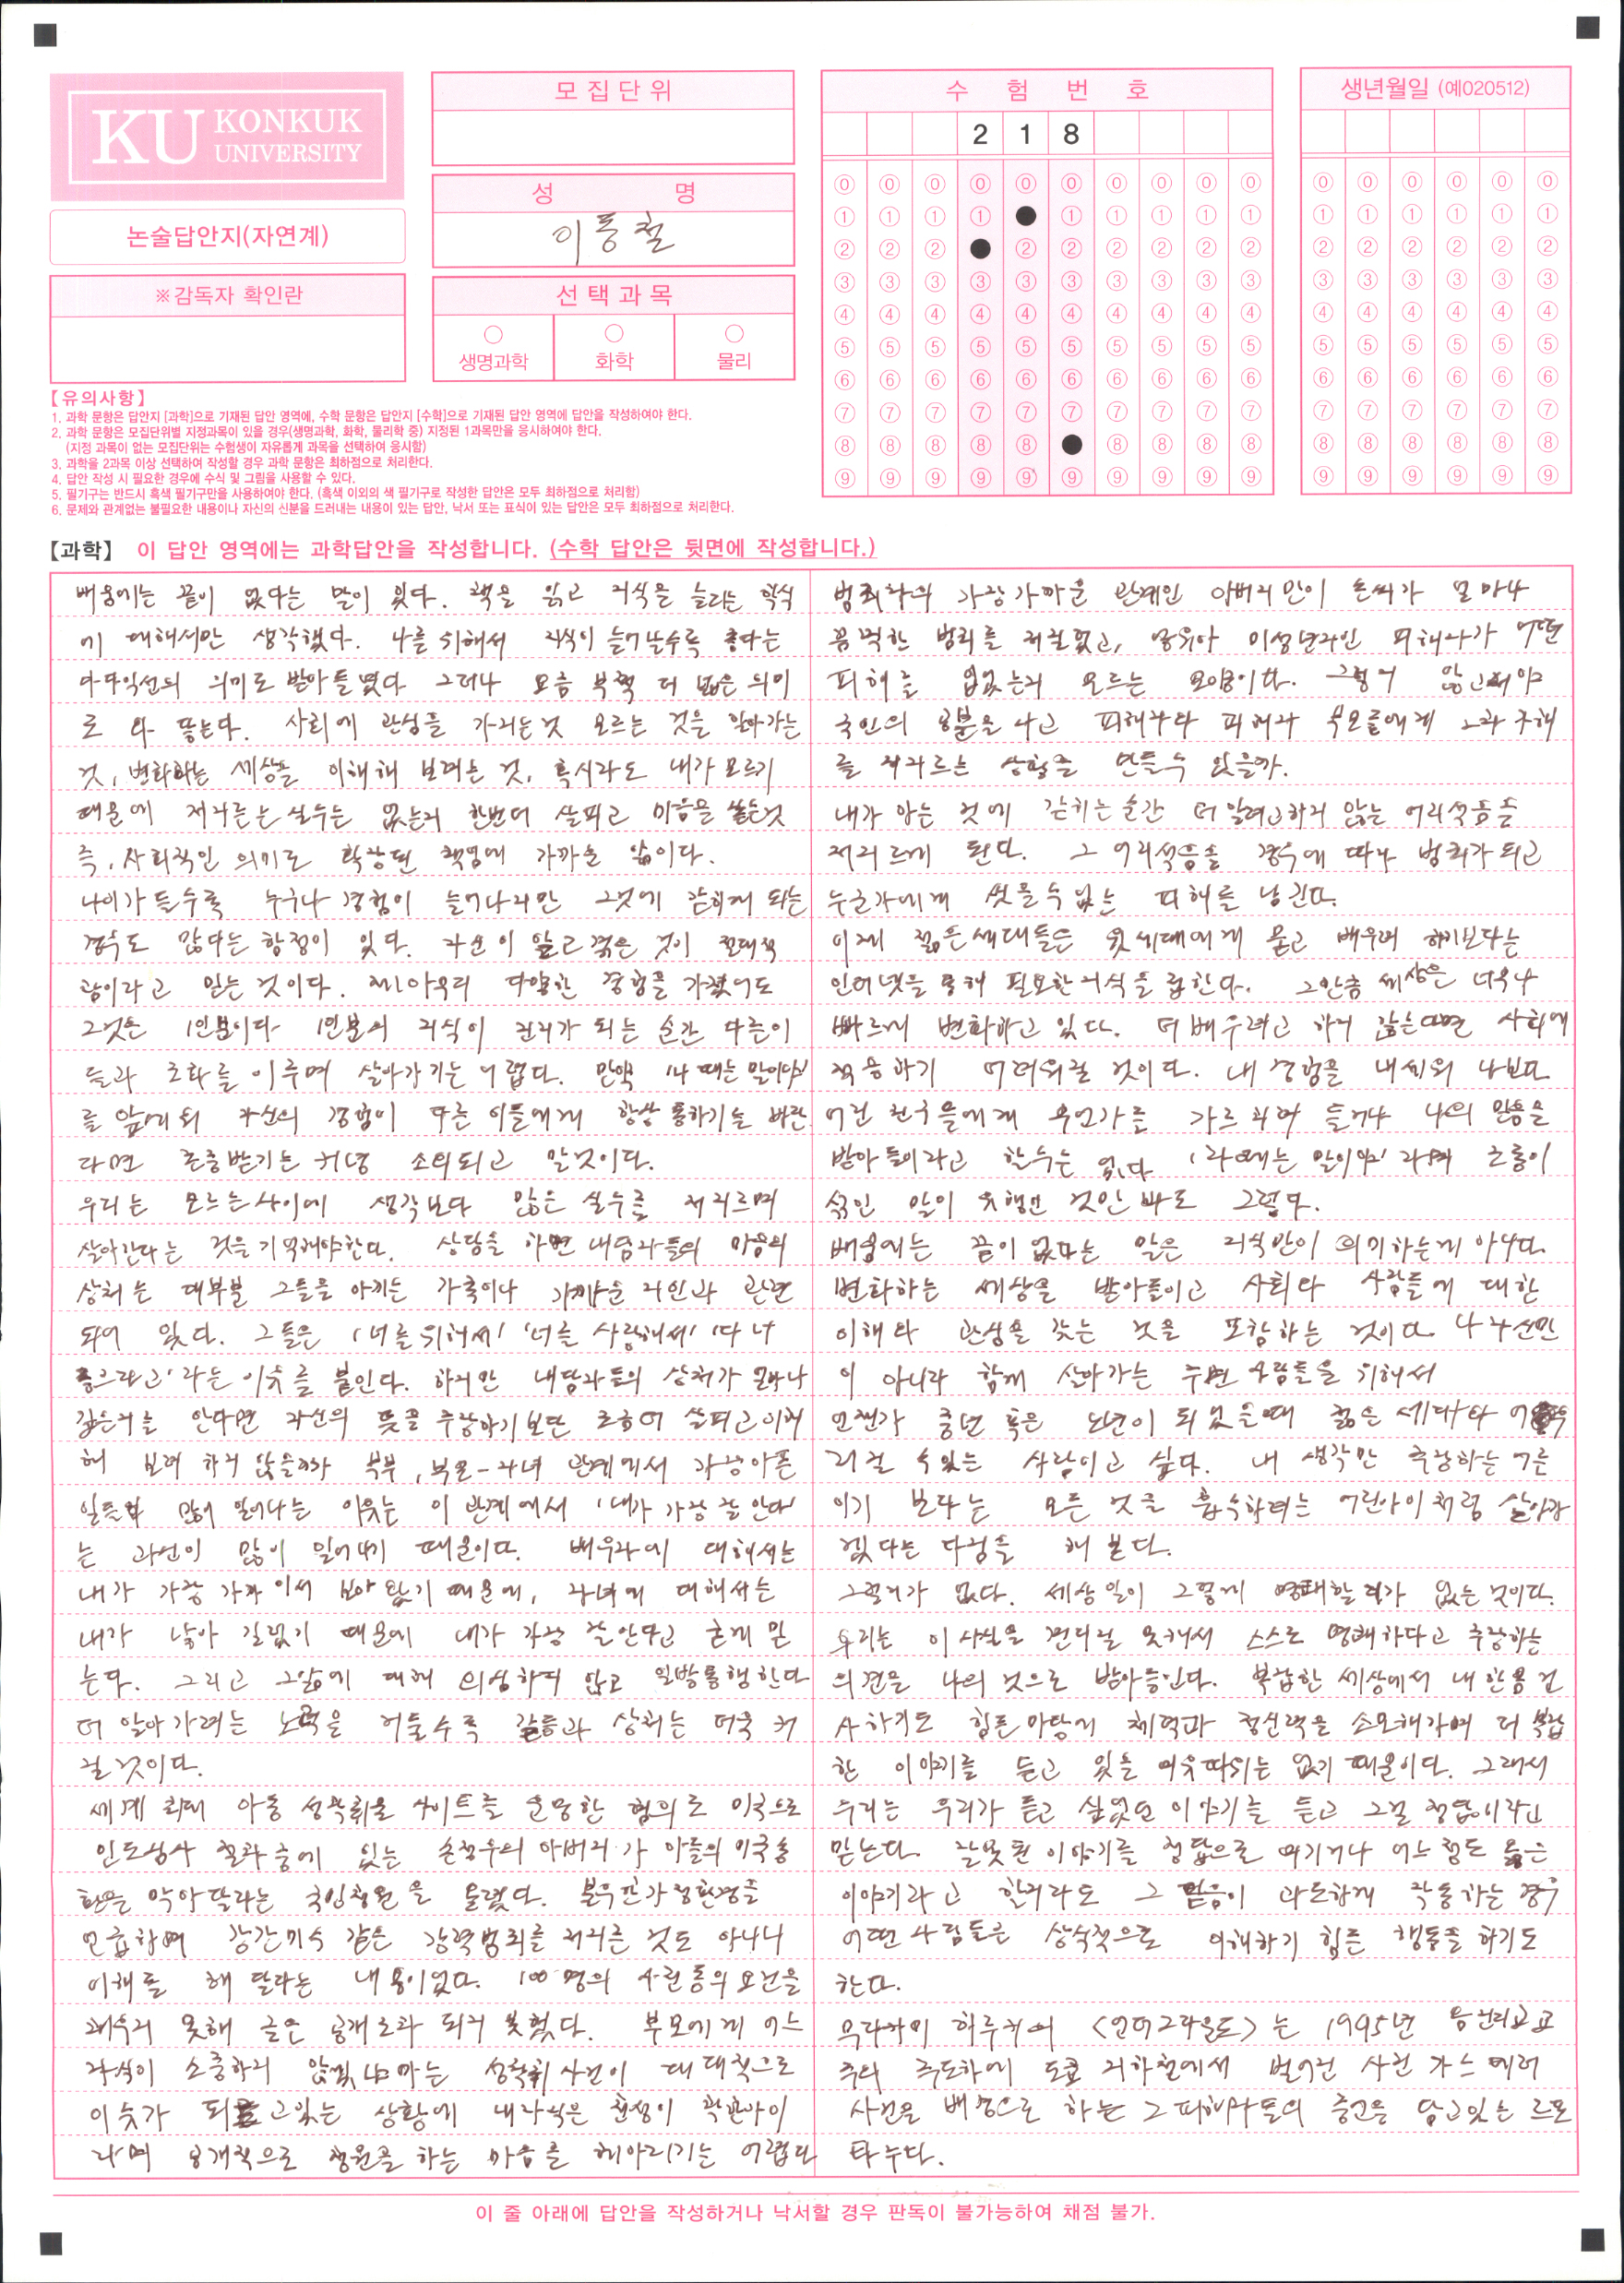 KU KONKUK UNIVERSITY
논술답안지(자연계)
※감독자 확인란
모집단위
성 명
이동철
선택과목
생명과학 화학 물리
수 험 번 호
2 1 8
생년월일 (예020512)
【유의사항】
1. 과학 문항은 답안지 [과학]으로 기재된 답안 영역에, 수학 문항은 답안지 [수학]으로 기재된 답안 영역에 답안을 작성하여야 한다.
2. 과학 문항은 모집단위별 지정과목이 있을 경우(생명과학, 화학, 물리학 중) 지정된 1과목만을 응시하여야 한다.
(지정 과목이 없는 모집단위는 수험생이 자유롭게 과목을 선택하여 응시함)
3. 과학을 2과목 이상 선택하여 작성할 경우 과학 문항은 최하점으로 처리한다.
4. 답안 작성 시 필요한 경우에 수식 및 그림을 사용할 수 있다.
5. 필기구는 반드시 흑색 필기구만을 사용하여야 한다. (흑색 이외의 색 필기구로 작성한 답안은 모두 최하점으로 처리함)
6. 문제와 관계없는 불필요한 내용이나 자신의 신분을 드러내는 내용이 있는 답안, 낙서 또는 표식이 있는 답안은 모두 최하점으로 처리한다.
【과학】 이 답안 영역에는 과학답안을 작성합니다. (수학 답안은 뒷면에 작성합니다.)
배움에는 끝이 없다는 말이 있다. 책을 읽고 지식을 늘리는 학식
에 대해서만 생각했다. 나를 위해서 지식이 늘어날수록 좋다는
다다익선의 의미로 받아들였다 그러나 요즘 부쩍 더 넓은 의미
로 와 닿는다. 사회에 관심을 가지는것 모르는 것을 알아가는
것, 변화하는 세상을 이해해 보려는 것, 혹시라도 내가 모르기
때문에 저지르는 실수는 없는지 한번더 살피고 마음을 쓰는것
즉, 사회적인 의미로 확장된 책임에 가까운 앎이다.
나이가 들수록 누구나 경험이 늘어나지만 그것에 갇히게 되는
경우도 많다는 함정이 있다. 자신이 알고 겪은 것이 절대적
참이라고 믿는 것이다. 제아무리 다양한 경험을 가졌어도
그것은 1인분이다 1인분의 지식이 진리가 되는 순간 다른이
들과 조화를 이루며 살아가기는 어렵다. 만약 '나 때는 말이야'
를 앞세워 자신의 경험이 다른 이들에게 항상 통하기를 바란
다면 존중받기는 커녕 소외되고 말것이다.
우리는 모르는사이에 생각보다 많은 실수를 저지르며
살아간다는 것을 기억해야한다. 상담을 하면 내담자들의 마음의
상처는 대부분 그들을 아끼는 가족이나 가까운 지인과 관련
되어 있다. 그들은 '너를 위해서' '너를 사랑해서' '다 너
좋으라고' 라는 이유를 붙인다. 하지만 내담자들의 상처가 얼마나
깊은지를 안다면 자신의 뜻을 주장하기 보단 조금더 살피고 이해
해 보려 하지 않을까 부부, 부모-자녀 관계에서 가장아픈
일들이 많이 일어나는 이유는 이 관계에서 '내가 가장 잘 안다'
는 과신이 많이 일어나기 때문이다. 배우자에 대해서는
내가 가장 가까이서 보아 왔기 때문에, 자녀에 대해서는
내가 낳아 길렀기 때문에 내가 가장 잘안다고 굳게 믿
는다. 그리고 그앎에 대해 의심하지 않고 일방통행한다
더 알아가려는 노력을 거둘수록 갈등과 상처는 더욱 커
질것이다.
세계 최대 아동 성착취물 사이트를 운영한 혐의로 미국으로
인도심사 결과중에 있는 손정우의 아버지가 아들의 미국송
환을 막아달라는 국민청원을 올렸다. 불우한가정환경을
언급하며 강간미수 같은 강력범죄를 저지른 것도 아니니
이해를 해 달라는 내용이었다. 100명의 사전동의 요건을
채우지 못해 글은 공개조차 되지 못했다. 부모에게 어느
자식이 소중하지 않겠냐마는 성착취사건이 대대적으로
이슈가 되고있는 상황에 내자식은 천성이 착한아이
라며 공개적으로 청원을 하는 마음을 헤아리기는 어렵다
범죄자의 가장가까운 관계인 아버지만이 손씨가 얼마나
끔찍한 범죄를 저질렀고, 영유아 미성년자인 피해자가 어떤
피해를 입었는지 모르는 모양이다. 그렇지 않고서야
국민의 공분을 사고 피해자와 피해자 부모들에게 2차 가해
를 저지르는 상황을 만들수 있을까.
내가 아는 것에 갇히는순간 더 알려고하지 않는 어리석음을
저지르게 된다. 그 어리석음은 경우에 따라 범죄가되고
누군가에게 씻을수없는 피해를 남긴다.
이제 젊은세대들은 윗세대에게 묻고 배우려 하기보다는
인터넷을 통해 필요한지식을 접한다. 그만큼 세상은 너무나
빠르게 변화하고 있다. 더배우려고 하지 않는다면 사회에
적응하기 어려워질 것이다. 내 경험을 내세워 나보다
어린 친구들에게 무언가를 가르치려 들거나 나의 믿음을
받아들이라고 할수는 없다 '라떼는 말이야' 라며 조롱이
섞인 말이 유행인 것만 봐도 그렇다.
배움에는 끝이 없다는 말은 지식만이 의미하는게 아니다
변화하는 세상을 받아들이고 사회와 사람들에 대한
이해와 관심을 갖는 것을 포함하는 것이다 나 자신만
이 아니라 함께 살아가는 주변 사람들을 위해서
언젠가 중년 혹은 노년이 되었을때 젊은 세대와 어우
러질 수있는 사람이고 싶다. 내 생각만 주장하는 어른
이기 보다는 모든 것을 흡수하려는 어린아이처럼 살아가
겠다는 다짐을 해 본다.
그럴리가 없다. 세상일이 그렇게 명쾌할리가 없는 것이다.
우리는 이사실을 견디질 못해서 스스로 명쾌하다고 주장하는
의견을 나의 것으로 받아들인다. 복잡한 세상에서 내 한몸 건
사하기도 힘든마당에 체력과 정신력을 소모해가며 더 복잡
한 이야기를 듣고 있을 여유따위는 없기 때문이다. 그래서
우리는 우리가 듣고 싶었던 이야기를 듣고 그걸 정답이라고
믿는다. 잘못된 이야기를 정답으로 여기거나 어느정도 옳은
이야기라고 할지라도 그 믿음이 과도하게 작동하는 경우
어떤사람들은 상식적으로 이해하기 힘든 행동을 하기도
한다.
무라카미 하루키의 <언더그라운드>는 1995년 옴진리교 교
주의 주도하에 도쿄 지하철에서 벌어진 사린 가스테러
사건을 배경으로 하는 그 피해자들의 증언을 담고있는 르포
타주다.
이 줄 아래에 답안을 작성하거나 낙서할 경우 판독이 불가능하여 채점 불가.